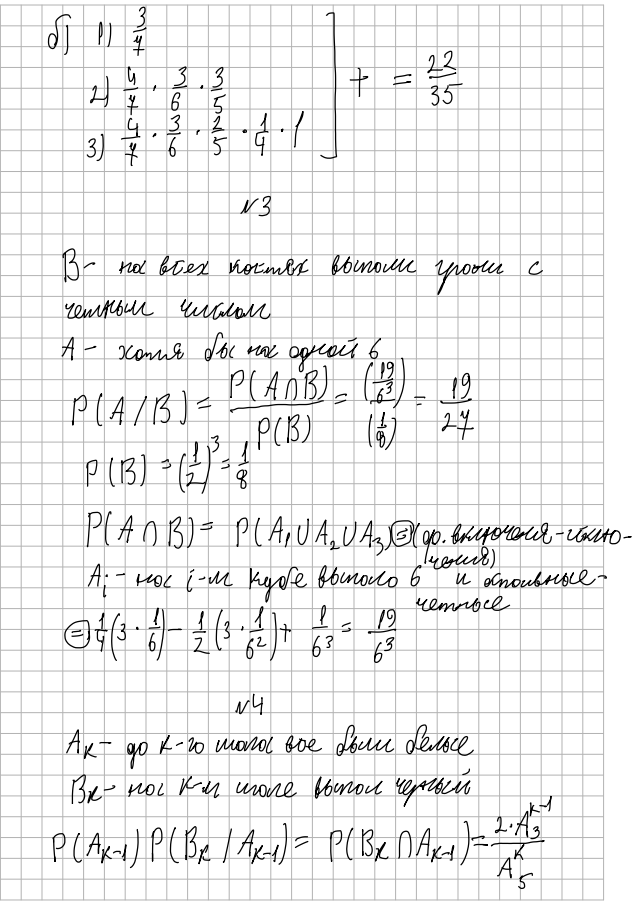 б) 1) 3/7
2) 4/7 · 3/6 · 3/5 ] + = 22/35
3) 4/7 · 3/6 · 2/5 · 1/4 · 1
№3
B - на всех костях выпали грани с
четным числом
A - хотя бы на одной 6
P(A/B) = P(A∩B)/P(B) = (19/6³)/(1/8) = 19/27
P(B) = (1/2)³ = 1/8
P(A∩B) = P(A₁∪A₂∪A₃) ⊜ (ф. включения-исклю-
чения)
Aᵢ - на i-м кубе выпало 6 и остальные-
четные
⊜ 1/4(3 · 1/6) - 1/2(3 · 1/6²) + 1/6³ = 19/6³
№4
Aₖ - до k-го шага все были белые
Bₖ - на k-м шаге выпал черный
P(Aₖ₋₁) P(Bₖ/Aₖ₋₁) = P(Bₖ∩Aₖ₋₁) = 2·A₃ᵏ⁻¹/A₅ᵏ